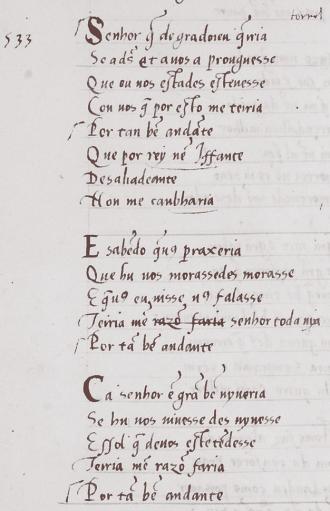 tornel
533
Senhor q̃ de gradoieu q̃rria
Se a ds̃ et auos a prouguesse
Que ou uos estades esteuesse
Con uos q̃ por esto me teiria
Por tan bẽ andãte
Que por rey nẽ Iffante
Desaliadeante
Non me canbharia
E sabẽdo q̃uꝯ praxeria
Que hu uos morassedes morasse
E q̃uꝯ euuisse, nꝯ falasse
Teiria mẽ razõ faria senhor toda uia
Por tã bẽ andante
Ca senhor ẽ grã bẽ uyueria
Se hu uos uiuesse des uyuesse
E ssol q̃ deuos estẽtẽdesse
Terria mẽ razõ faria
Por tã bẽ andante